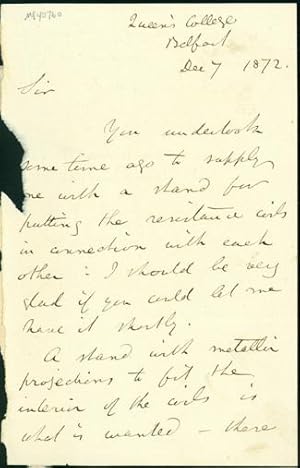 Queen's College
Belfast
Dec 7 1872.
Sir
You undertook
some time ago to supply
me with a stand for
putting the resistance coils
in connection with each
other: I should be very
glad if you could let me
have it shortly.
A stand with metallic
projections to fit the
interior of the coils is
what is wanted — there